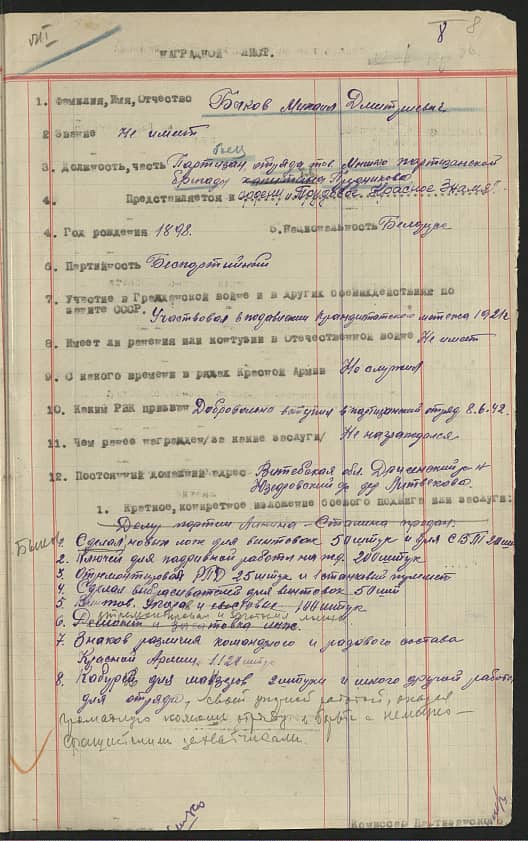 VIII
8 8
НАГРАДНОЙ ЛИСТ.
1. Фамилия, Имя, Отчество Быков Михаил Дмитриевич
2 Звание Не имеет
боец
3. Должность, часть Партизан отряда тов. Мишко партизанской
бригады капитана Прудникова
4. Представляется к орден. „Трудовое Красное Знамя“.
4. Год рождения 1898. 5. Национальность Белорус
6. Партийность Беспартийный
7. Участие в Гражданской войне и в других боевых действиях по
защите СССР. Участвовал в подавлении Кронштадтского мятежа 1921г
8. Имеет ли ранения или контузии в Отечественной войне Не имеет
9. С какого времени в рядах Красной Армии Не служил
10. Каким РВК призван Добровольно вступил в партизанский отряд 8.6.42.
11. Чем ранее награжден/за какие заслуги/ Не награждался
12. Постоянный домашний адрес Витебская обл. Дриссенский р-н
дер
1. Краткое, конкретное изложение боевого подвига или заслуги:
Делу партии Ленина–Сталина предан.
1. Сделал новых лож для винтовок 50 штук и для СВТ 20 штук
2. Ключей для подрывной работы на жд. 200 штук
3. Отремонтировал РПД 25 штук и 1 станковый пулемет
4. Сделал выбрасывателей для винтовок 50 шт
5. Винтов. упоров 100 штук
6.
7. Знаков различия командного и рядового состава
Красной Армии 1120 штук
8. Кабуры для маузеров 2 штуки и много другой работы
для отряда, своей упорной работой, оказал
громадную помощь отряду в борьбе с немецко-
фашистскими захватчиками.
Комиссар Партизанского